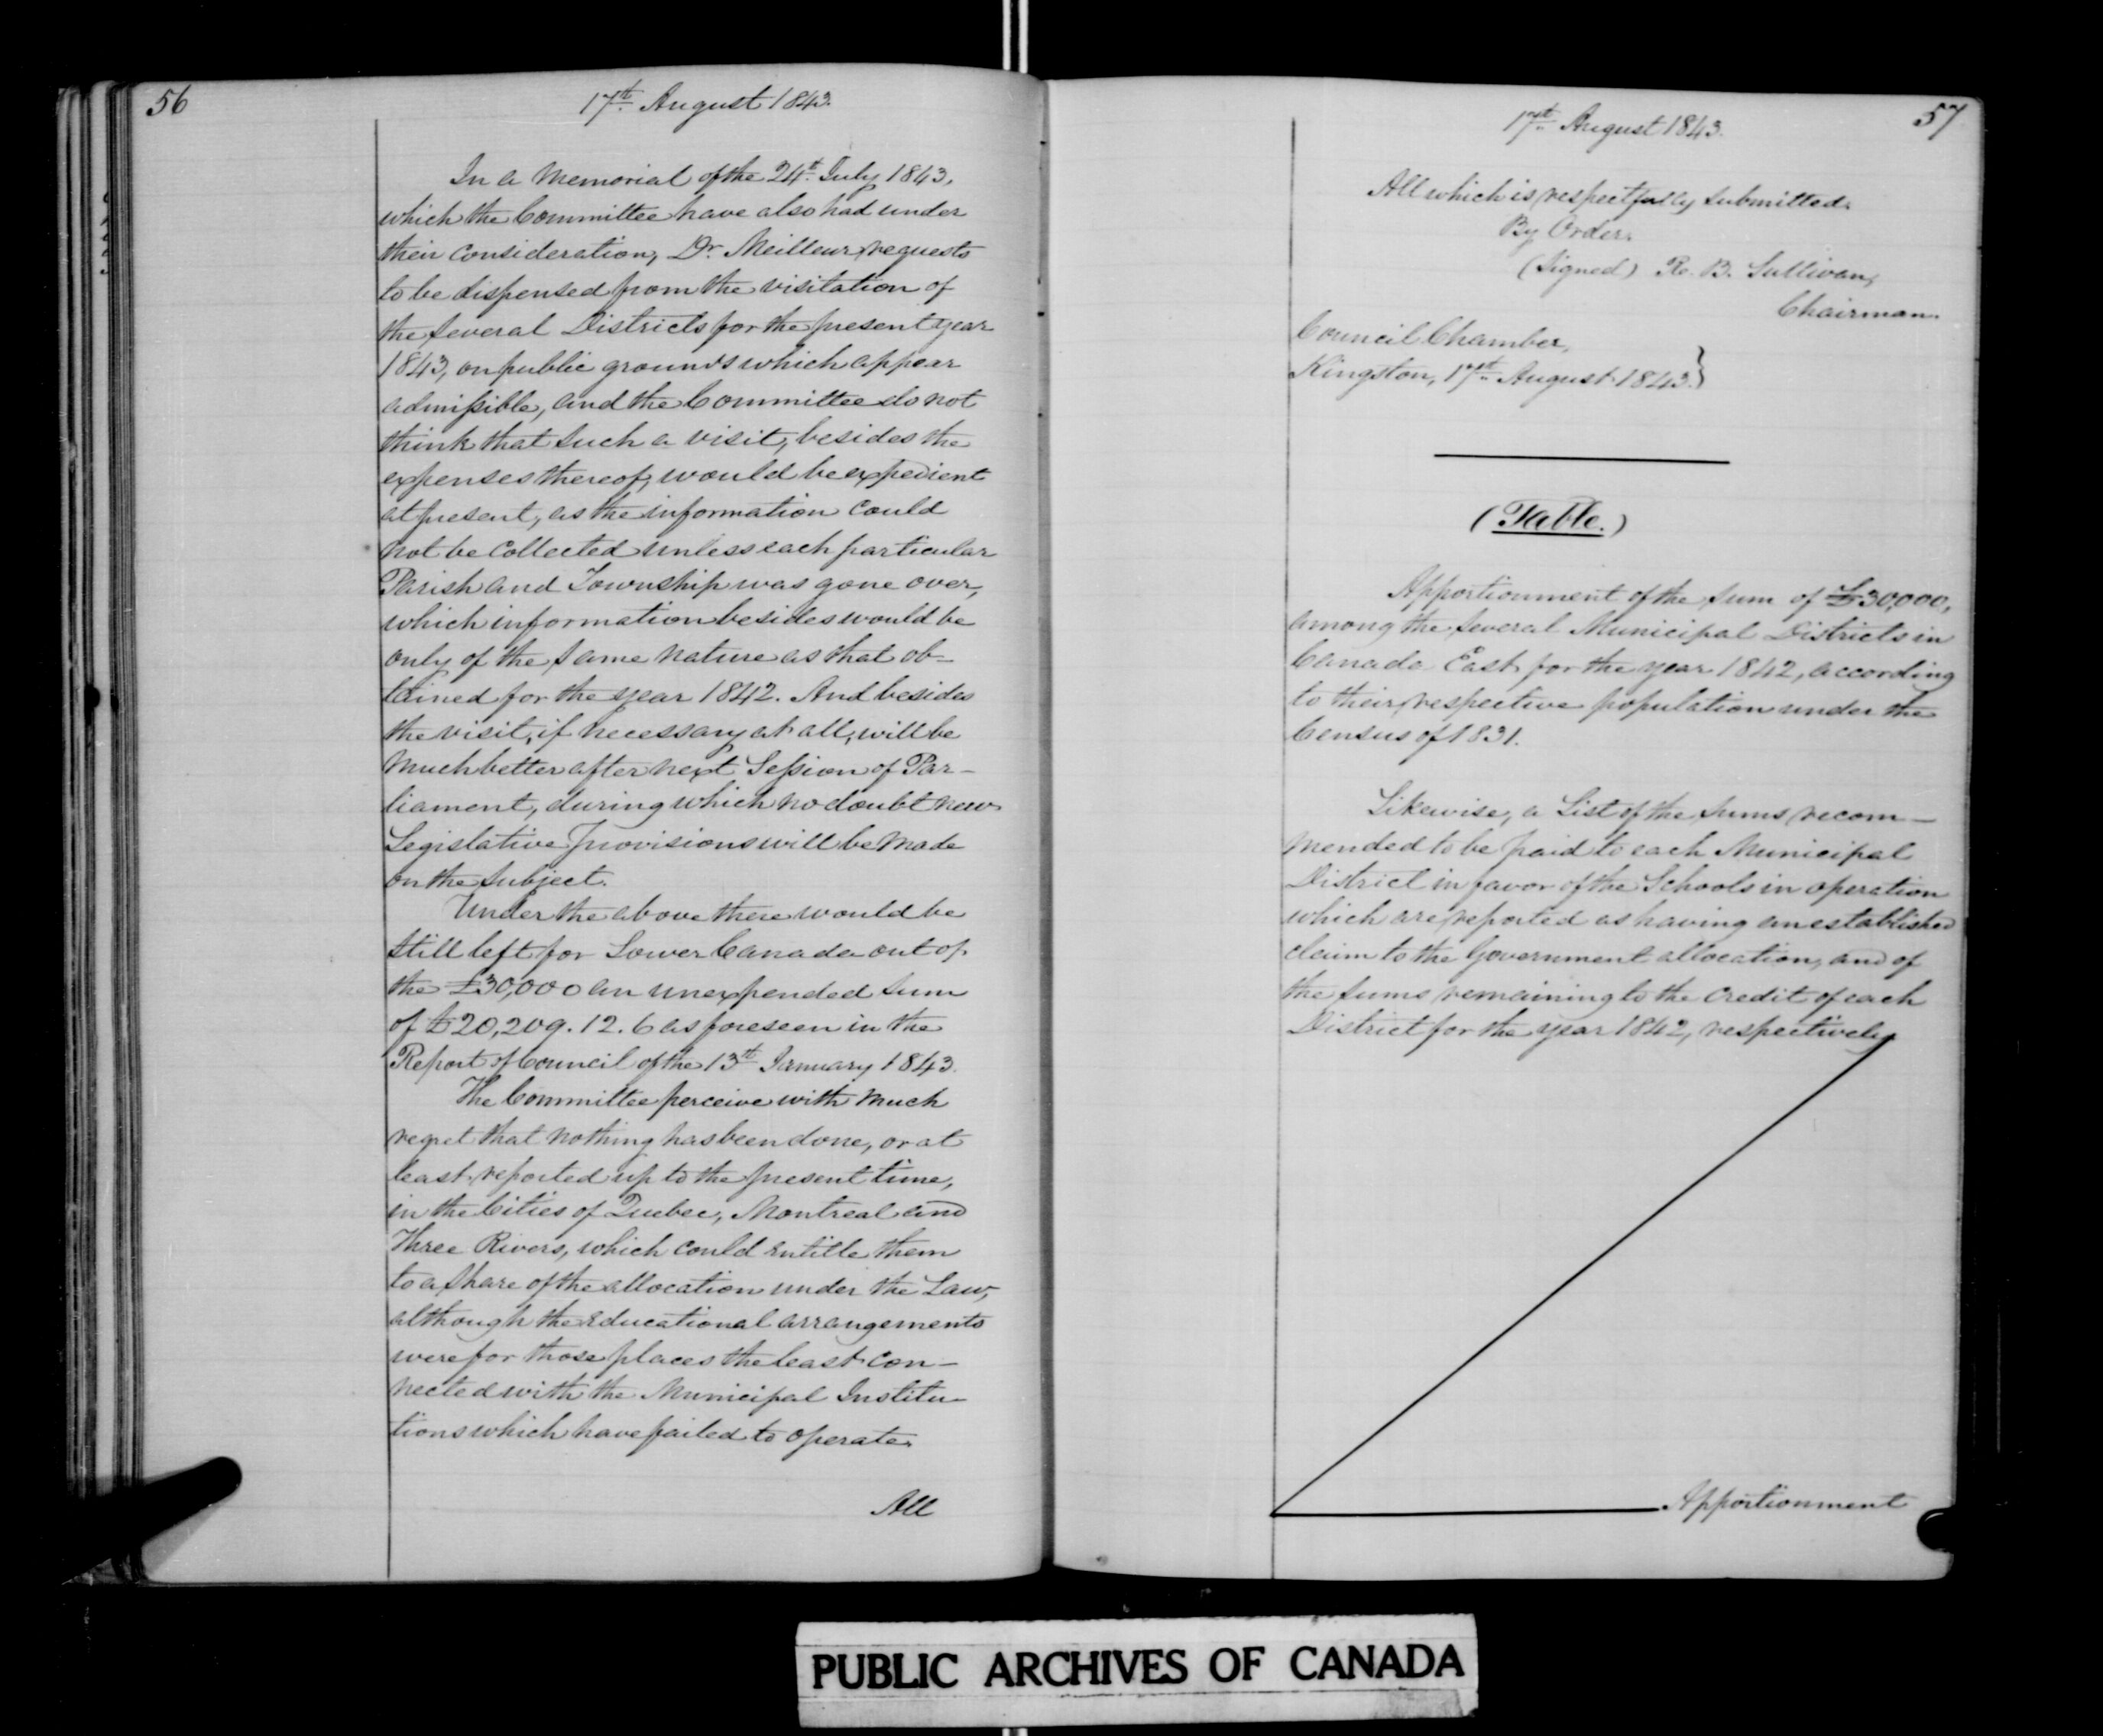 56
17th August 1843.
In a Memorial of the 24th July 1843,
which the Committee have also had under
their consideration, Dr. Meilleur requests
to be dispensed from the visitation of
the several Districts for the present year
1843, on public grounds which appear
admissible, and the Committee do not
think that such a visit, besides the
expenses thereof, would be expedient
at present, as the information could
not be collected unless each particular
Parish and Township was gone over,
which information besides would be
only of the same nature as that ob-
tained for the year 1842. And besides
the visit, if necessary at all, will be
much better after next Session of Par-
liament, during which no doubt new
Legislative Provisions will be made
on the subject.
Under the above there would be
still left for Lower Canada out of
the £30,000 an unexpended sum
of £20,209.12.6 as foreseen in the
Report of Council of the 13th January 1843.
The Committee perceive with much
regret that nothing has been done, or at
least reported up to the present time,
in the Cities of Quebec, Montreal and
Three Rivers, which could entitle them
to a share of the allocation under the Law,
although the Educational arrangements
were for those places the least con-
nected with the Municipal Institu-
tions which have failed to operate.
All
57
17th August 1843.
All which is respectfully submitted.
By Order.
(Signed) R. B. Sullivan,
Chairman.
Council Chamber,
Kingston, 17th August 1843. }
(Table.)
Apportionment of the sum of £30,000,
among the several Municipal Districts in
Canada East for the year 1842, according
to their respective population under the
Census of 1831.
Likewise, a List of the sums recom-
mended to be paid to each Municipal
District in favor of the Schools in operation
which are reported as having an established
claim to the Government allocation, and of
the sums remaining to the credit of each
District for the year 1842, respectively
Apportionment
PUBLIC ARCHIVES OF CANADA